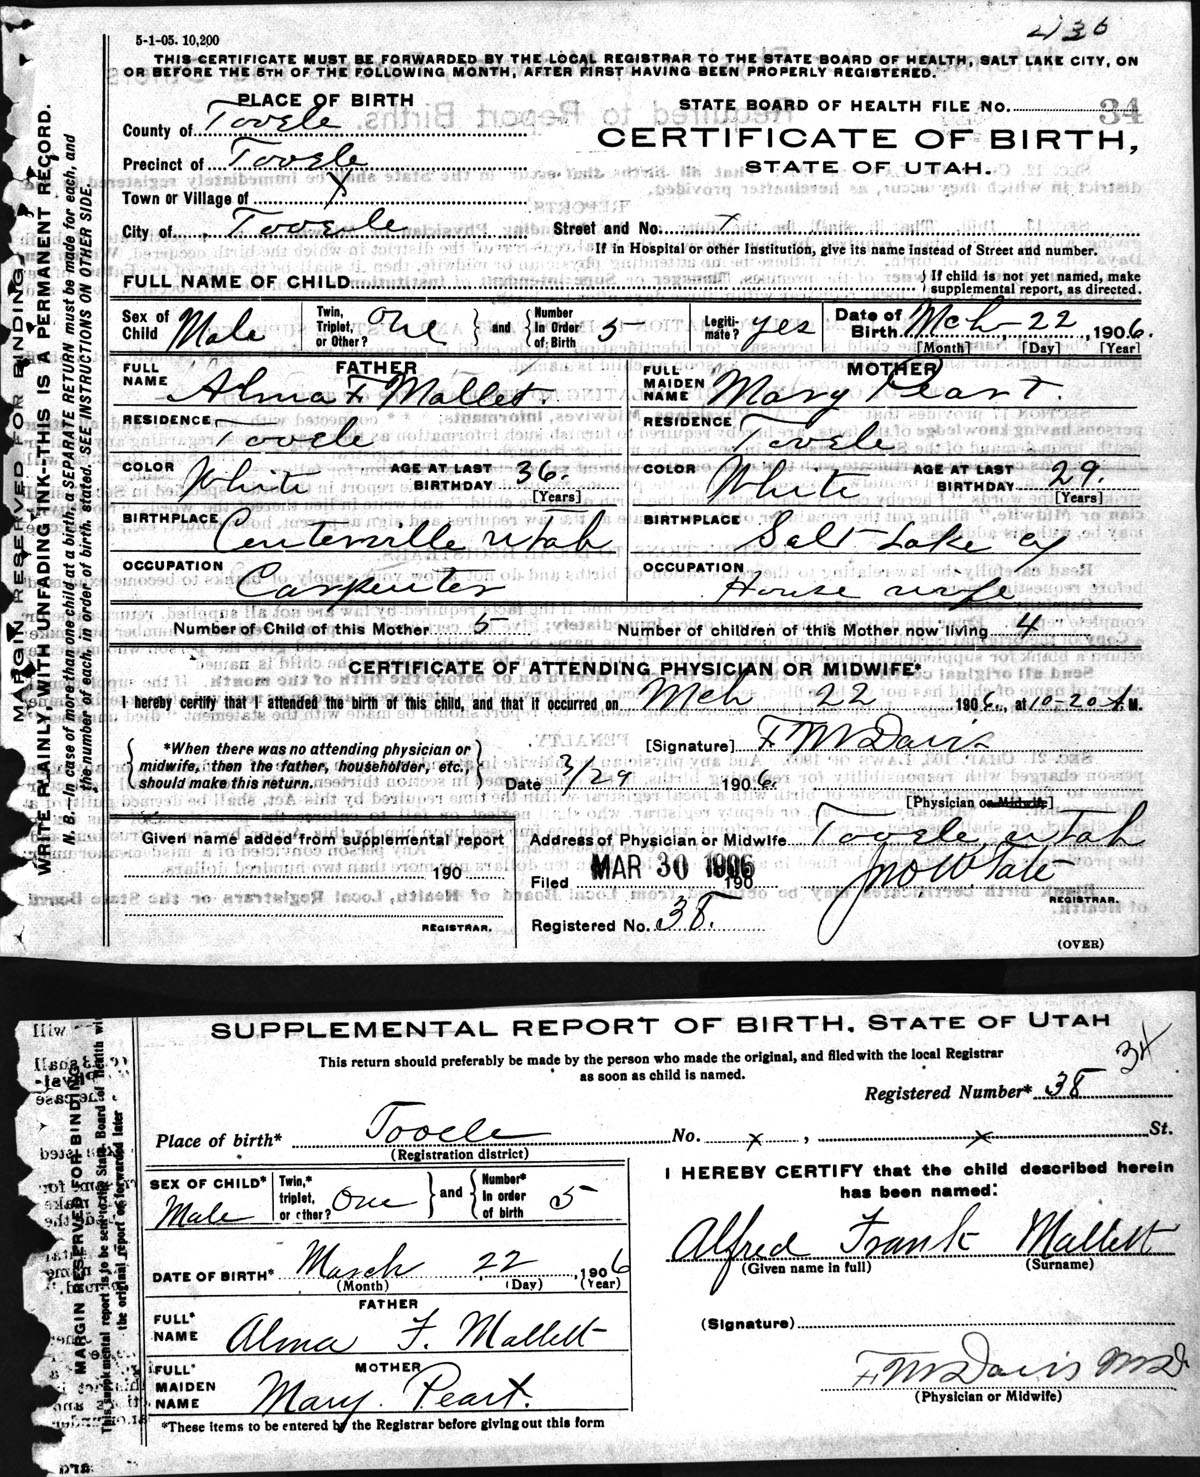 5-1-05. 10,200
436
THIS CERTIFICATE MUST BE FORWARDED BY THE LOCAL REGISTRAR TO THE STATE BOARD OF HEALTH, SALT LAKE CITY, ON
OR BEFORE THE 5TH OF THE FOLLOWING MONTH, AFTER FIRST HAVING BEEN PROPERLY REGISTERED.
PLACE OF BIRTH
County of Tooele
Precinct of Tooele
Town or Village of X
City of Tooele
STATE BOARD OF HEALTH FILE NO. 34
CERTIFICATE OF BIRTH,
STATE OF UTAH.
Street and No. x
If in Hospital or other Institution, give its name instead of Street and number.
FULL NAME OF CHILD
If child is not yet named, make
supplemental report, as directed.
Sex of Child Male
Twin, Triplet, or Other? One and Number In Order of Birth 5
Legitimate? yes
Date of Birth Mch 22 1906.
[Month] [Day] [Year]
FATHER
FULL NAME Alma F Mallet.
RESIDENCE Tooele
COLOR White AGE AT LAST BIRTHDAY 36.
[Years]
BIRTHPLACE Centerville Utah
OCCUPATION Carpenter
MOTHER
FULL MAIDEN NAME Mary Peart.
RESIDENCE Tooele
COLOR White AGE AT LAST BIRTHDAY 29.
[Years]
BIRTHPLACE Salt Lake Cy
OCCUPATION House wife
Number of Child of this Mother 5 Number of children of this Mother now living 4
CERTIFICATE OF ATTENDING PHYSICIAN OR MIDWIFE*
I hereby certify that I attended the birth of this child, and that it occurred on Mch 22 1906, at 10-20 A.M.
*When there was no attending physician or
midwife, then the father, householder, etc.,
should make this return.
[Signature] F M Davis
Date 3/29 1906.
[Physician or Midwife]
Given name added from supplemental report
190
REGISTRAR.
Address of Physician or Midwife Tooele, Utah
Filed MAR 30 1906 190
Jno W Tate
REGISTRAR.
Registered No. 38.
(OVER)
MARGIN RESERVED FOR BINDING
WRITE PLAINLY WITH UNFADING INK—THIS IS A PERMANENT RECORD.
N. B.—In case of more than one child at a birth, a SEPARATE RETURN must be made for each, and
the number of each, in order of birth, stated. SEE INSTRUCTIONS ON OTHER SIDE.
SUPPLEMENTAL REPORT OF BIRTH, STATE OF UTAH
This return should preferably be made by the person who made the original, and filed with the local Registrar
as soon as child is named.
34
Registered Number* 38
Place of birth* Tooele No. x , x St.
(Registration district)
SEX OF CHILD* Male
Twin,* triplet, or other? One and Number* in order of birth 5
DATE OF BIRTH* March 22, 1906
(Month) (Day) (Year)
FATHER
FULL* NAME Alma F. Mallett
MOTHER
FULL* MAIDEN NAME Mary Peart.
*These items to be entered by the Registrar before giving out this form
I HEREBY CERTIFY that the child described herein
has been named:
Alfred Frank Mallett
(Given name in full) (Surname)
(Signature)
F M Davis MD
(Physician or Midwife)
MARGIN RESERVED FOR BINDING
This supplemental report is to be sent to the State Board of Health
the original report of forwarded later